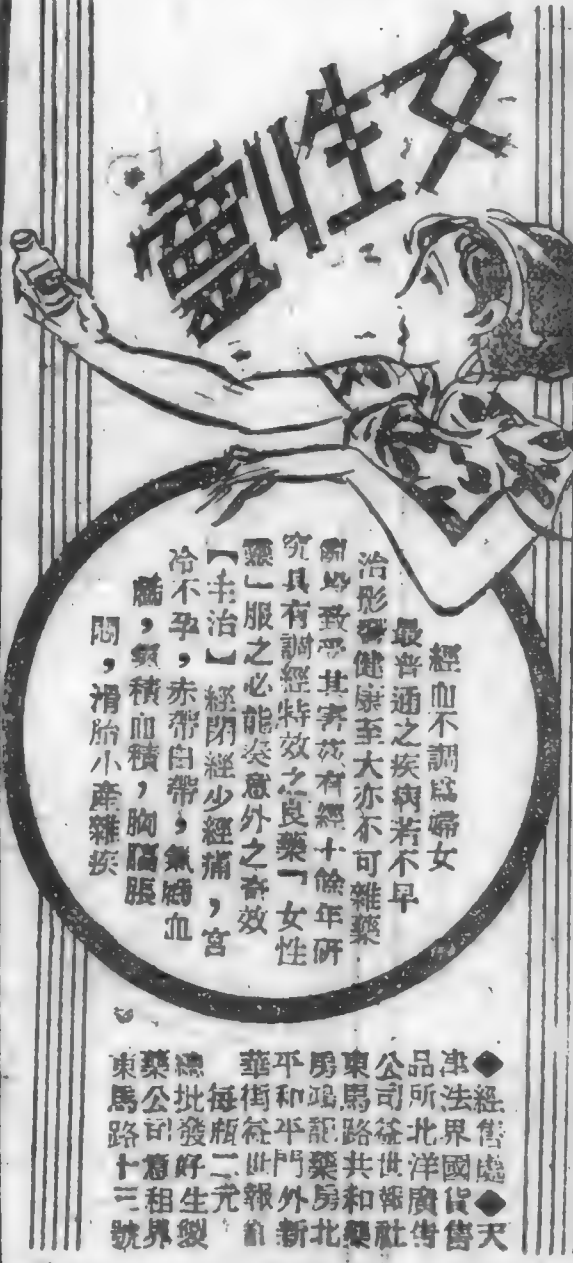 女性靈
經血不調為婦女
最普通之疾病若不早
治影響健康至大亦不可雜藥
亂投致受其害茲有經十餘年研
究具有調經特效之良藥「女性
靈」服之必能奏意外之奇效
【主治】經閉經少經痛，宮
冷不孕，赤帶白帶，氣虧血
虧，氣積血積，胸膈脹
悶，滑胎小產雜疾
◆經售處◆天
津法界國貨售
品所北洋廣告
公司益世報社
東馬路共和藥
房鴻記藥房北
平和平門外新
華街益世報
每瓶二元
總批發好生製
藥公司意租界
東馬路十三號